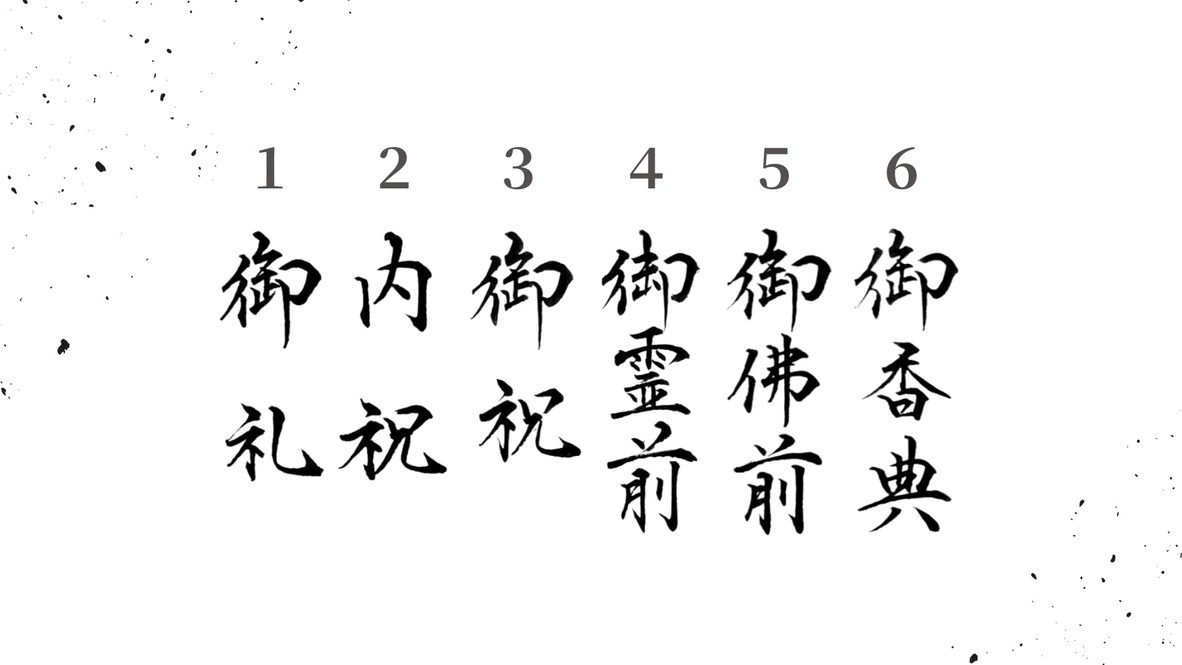 1 2 3 4 5 6
御礼
内祝
御祝
御霊前
御佛前
御香典